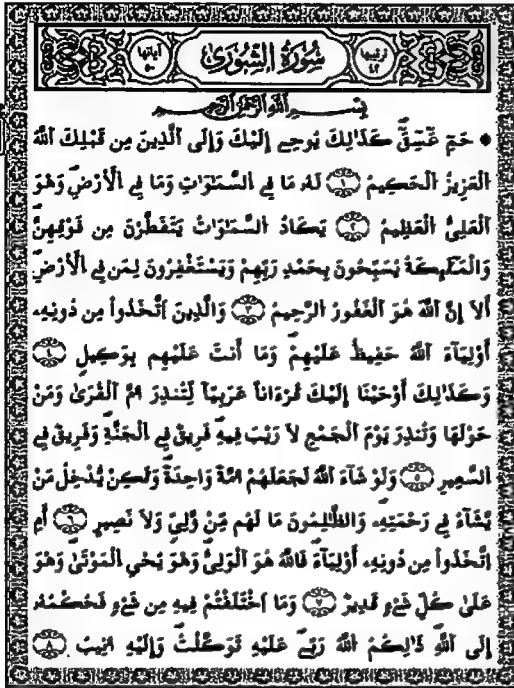 ترتيبها ٤٢ سُورَةُ الشُّورَىٰ آياتها ٥٠
بِسْمِ اللَّهِ الرَّحْمَٰنِ الرَّحِيمِ
حَمِٓ عَٓسِٓقَٓ كَذَٰلِكَ يُوحِے إِلَيْكَ وَإِلَى اَلَّذِينَ مِن قَبْلِكَ اَللَّهُ
اُلْعَزِيزُ اُلْحَكِيمُ ١ لَهُۥ مَا فِے اِلسَّمَٰوَٰتِ وَمَا فِے اِلْأَرْضِۖ وَهُوَ
اَلْعَلِيُّ اُلْعَظِيمُ ٢ يَكَادُ اُلسَّمَٰوَٰتُ يَتَفَطَّرْنَ مِن فَوْقِهِنَّۖ
وَالْمَلَٰٓئِكَةُ يُسَبِّحُونَ بِحَمْدِ رَبِّهِمْ وَيَسْتَغْفِرُونَ لِمَن فِے اِلْأَرْضِۖ
أَلَآ إِنَّ اَللَّهَ هُوَ اَلْغَفُورُ اُلرَّحِيمُ ٣ وَالَّذِينَ اَتَّخَذُواْ مِن دُونِهِۦٓ
أَوْلِيَآءَ اَللَّهُ حَفِيظٌ عَلَيْهِمْ وَمَآ أَنتَ عَلَيْهِم بِوَكِيلٍۖ ٤
وَكَذَٰلِكَ أَوْحَيْنَآ إِلَيْكَ قُرْءَاناً عَرَبِيّاً لِّتُنذِرَ أُمَّ اَلْقُرَىٰ وَمَنْ
حَوْلَهَا وَتُنذِرَ يَوْمَ اَلْجَمْعِ لَا رَيْبَ فِيهِۖ فَرِيقٌ فِے اِلْجَنَّةِ وَفَرِيقٌ فِے
اِلسَّعِيرِۖ ٥ وَلَوْ شَآءَ اَللَّهُ لَجَعَلَهُمْ أُمَّةً وَٰحِدَةً وَلَٰكِنْ يُّدْخِلُ مَنْ
يَّشَآءُ فِے رَحْمَتِهِۦۖ وَالظَّٰلِمُونَ مَا لَهُم مِّنْ وَّلِيٍّ وَلَا نَصِيرٍۖ ٦ أَمِ
اِتَّخَذُواْ مِن دُونِهِۦٓ أَوْلِيَآءَۖ فَاللَّهُ هُوَ اَلْوَلِيُّ وَهُوَ يُحْيِ اِلْمَوْتَىٰ وَهُوَ
عَلَىٰ كُلِّ شَےْءٍ قَدِيرٌۖ ٧ وَمَا اَخْتَلَفْتُمْ فِيهِ مِن شَےْءٍ فَحُكْمُهُۥٓ
إِلَى اَللَّهِۖ ذَٰلِكُمُ اُللَّهُ رَبِّے عَلَيْهِ تَوَكَّلْتُۖ وَإِلَيْهِ أُنِيبُۖ ٨